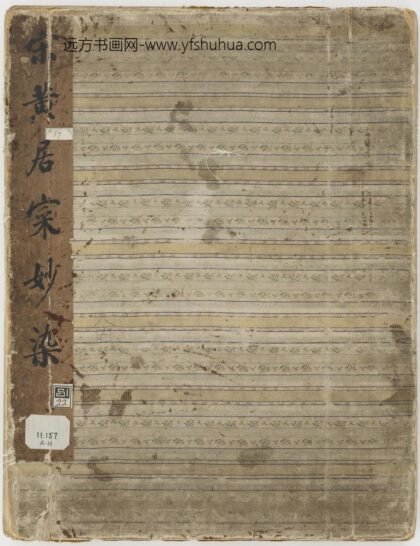 远方书画网-www.yfshuhua.com
宋黄居寀妙染
11.157
A-H